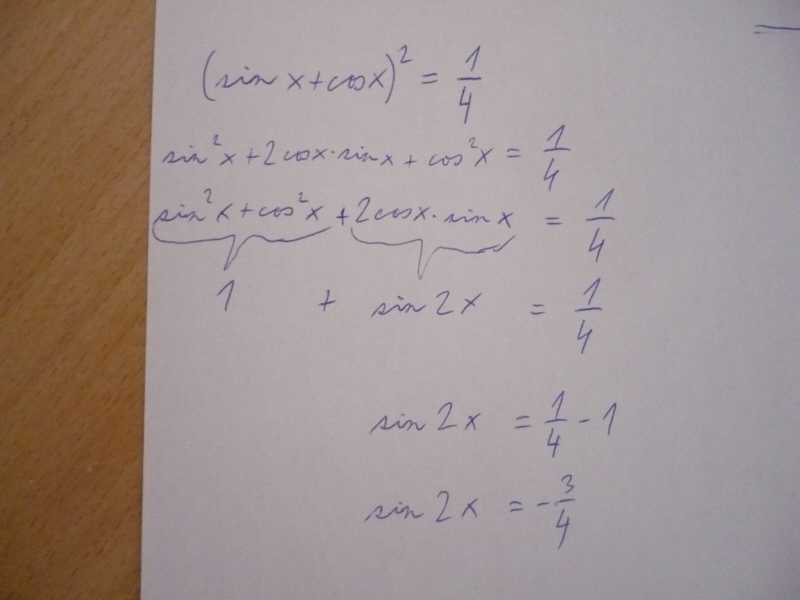 (sin x + cos x)² = 1/4
sin²x + 2 cos x · sin x + cos²x = 1/4
sin²x + cos²x + 2 cos x · sin x = 1/4
1 + sin 2x = 1/4
sin 2x = 1/4 - 1
sin 2x = - 3/4